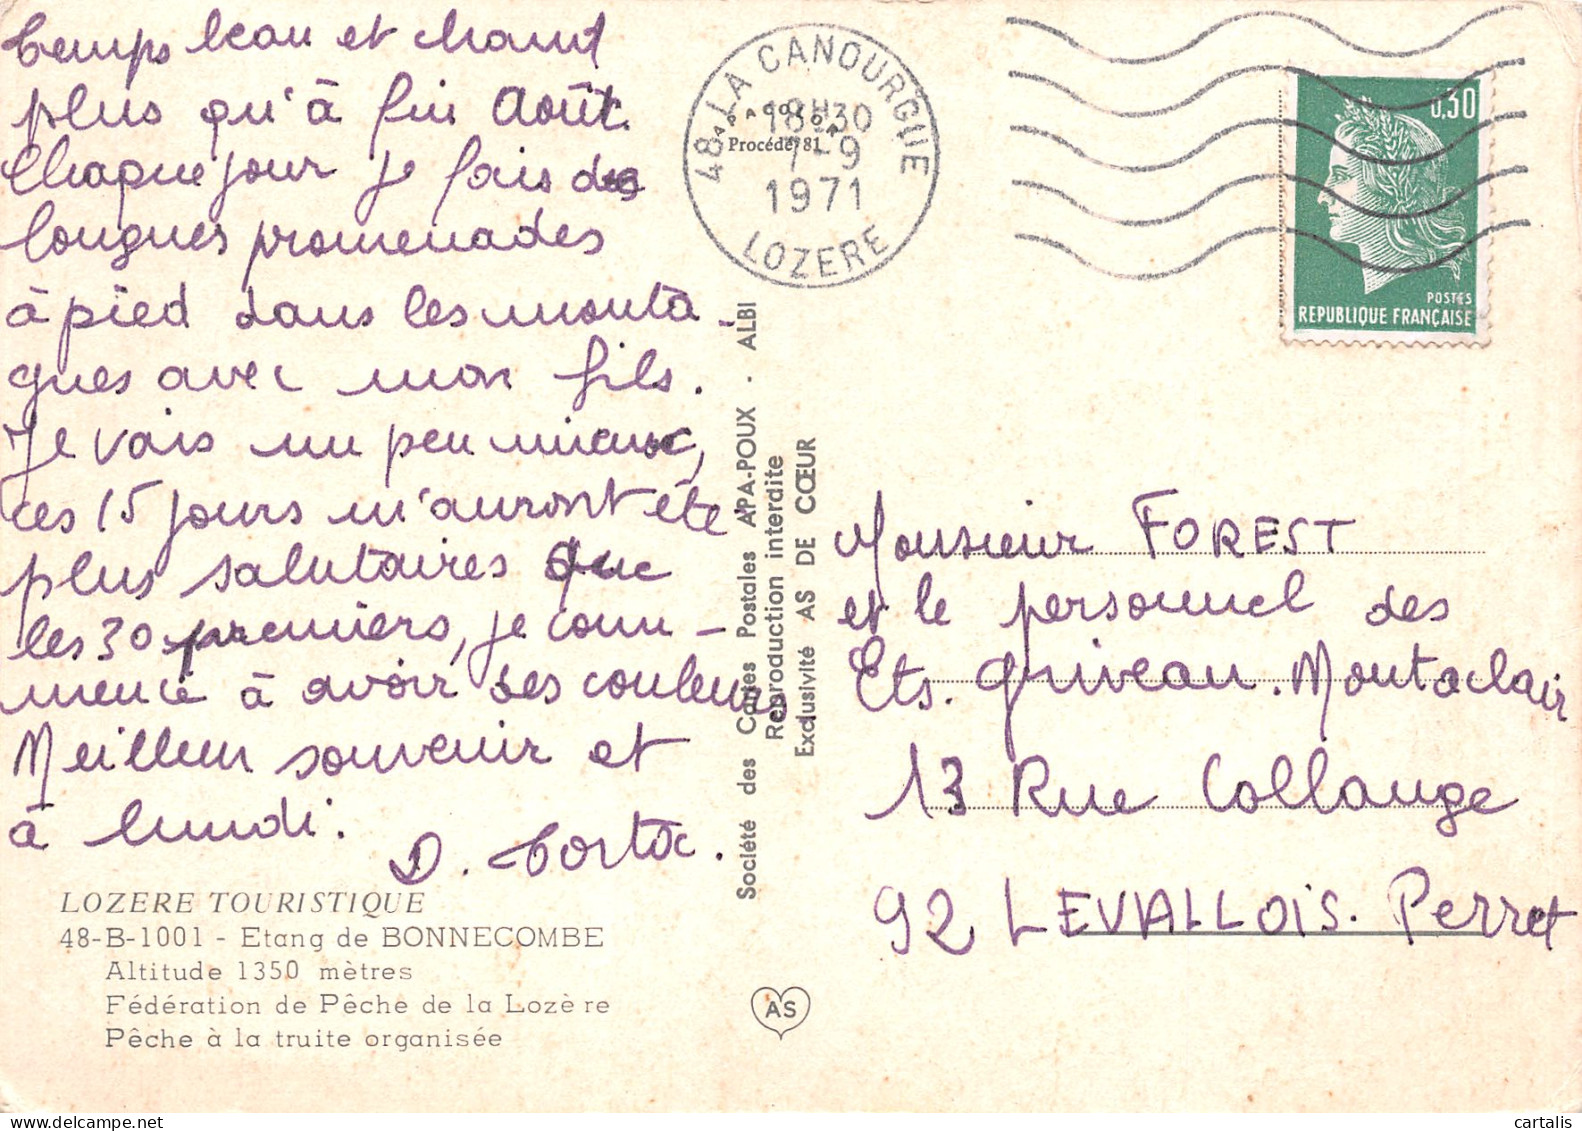 temps beau et chaud
plus qu'à fin Août.
Chaque jour je fais des
longues promenades
à pied dans les monta-
gnes avec mon fils.
Je vais un peu mieux,
ces 15 jours m'auront été
plus salutaires que
les 30 premiers, je com-
mence à avoir des couleurs
Meilleur souvenir et
à lundi.
D.
LOZERE TOURISTIQUE
48-B-1001 - Etang de BONNECOMBE
Altitude 1350 mètres
Fédération de Pêche de la Lozè re
Pêche à la truite organisée
Société des Cartes Postales APA-POUX - ALBI
Reproduction interdite
Exclusivité AS DE CŒUR
AS
48 LA CANOURGUE
18H30
7-9
1971
LOZERE
Procédé 81
0,30
POSTES
REPUBLIQUE FRANÇAISE
Monsieur FOREST
et le personnel des
Ets. Griveau. Montaclair
13 Rue Collange
92 LEVALLOIS. Perret
cartalis